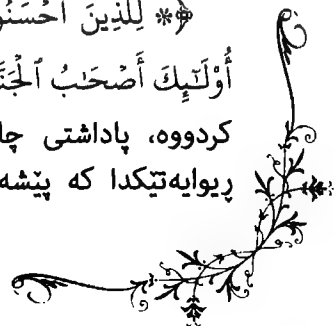 ﴿۞ لِّلَّذِينَ أَحْسَنُو
أُوْلَـٰٓئِكَ أَصْحَـٰبُ ٱلْجَنَّ
کردووە، پاداشتی چا
ڕیوایەتێکدا کە پێشە